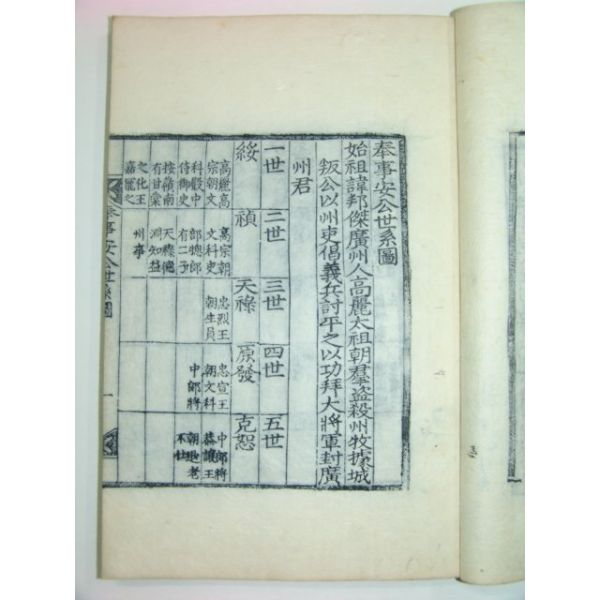 奉事安公世系圖
始祖諱邦傑廣州人高麗太祖朝羣盜殺州牧據城
叛公以州吏倡義兵討平之以功拜大將軍封廣
州君
一世
二世
三世
四世
五世
綏
禎
天祿
原發
克恕
高麗高
宗朝文
科殿中
侍御史
按嶺南
有甘棠
之化王
嘉麗之
高宗朝
文科吏
部摠郎
有二子
天祿德
淵知益
州事
忠烈王
朝生員
忠宣王
朝文科
中郎將
中郎將
恭讓王
朝退老
不仕
奉事安公世系圖
一